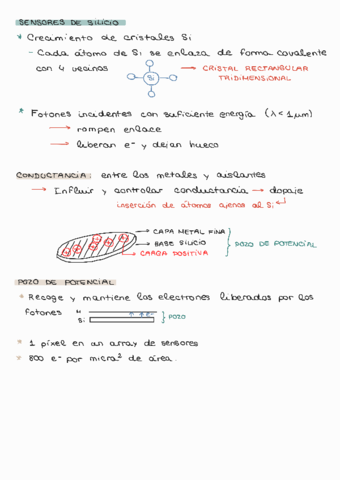 SENSORES DE SILICIO
* Crecimiento de cristales Si
- Cada átomo de Si se enlaza de forma covalente
con 4 vecinos
Si
→ CRISTAL RECTANGULAR
TRIDIMENSIONAL
* Fotones incidentes con suficiente energía (λ < 1 μm)
→ rompen enlace
→ liberan e- y dejan hueco
CONDUCTANCIA: entre los metales y aislantes
→ Influir y controlar conductancia → dopaje
inserción de átomos ajenos al Si
→ CAPA METAL FINA
→ BASE SILICIO
→ CARGA POSITIVA
POZO DE POTENCIAL
POZO DE POTENCIAL
* Recoge y mantiene los electrones liberados por los
fotones
Si
POZO
* 1 píxel en un array de sensores
* 800 e- por micra² de área.